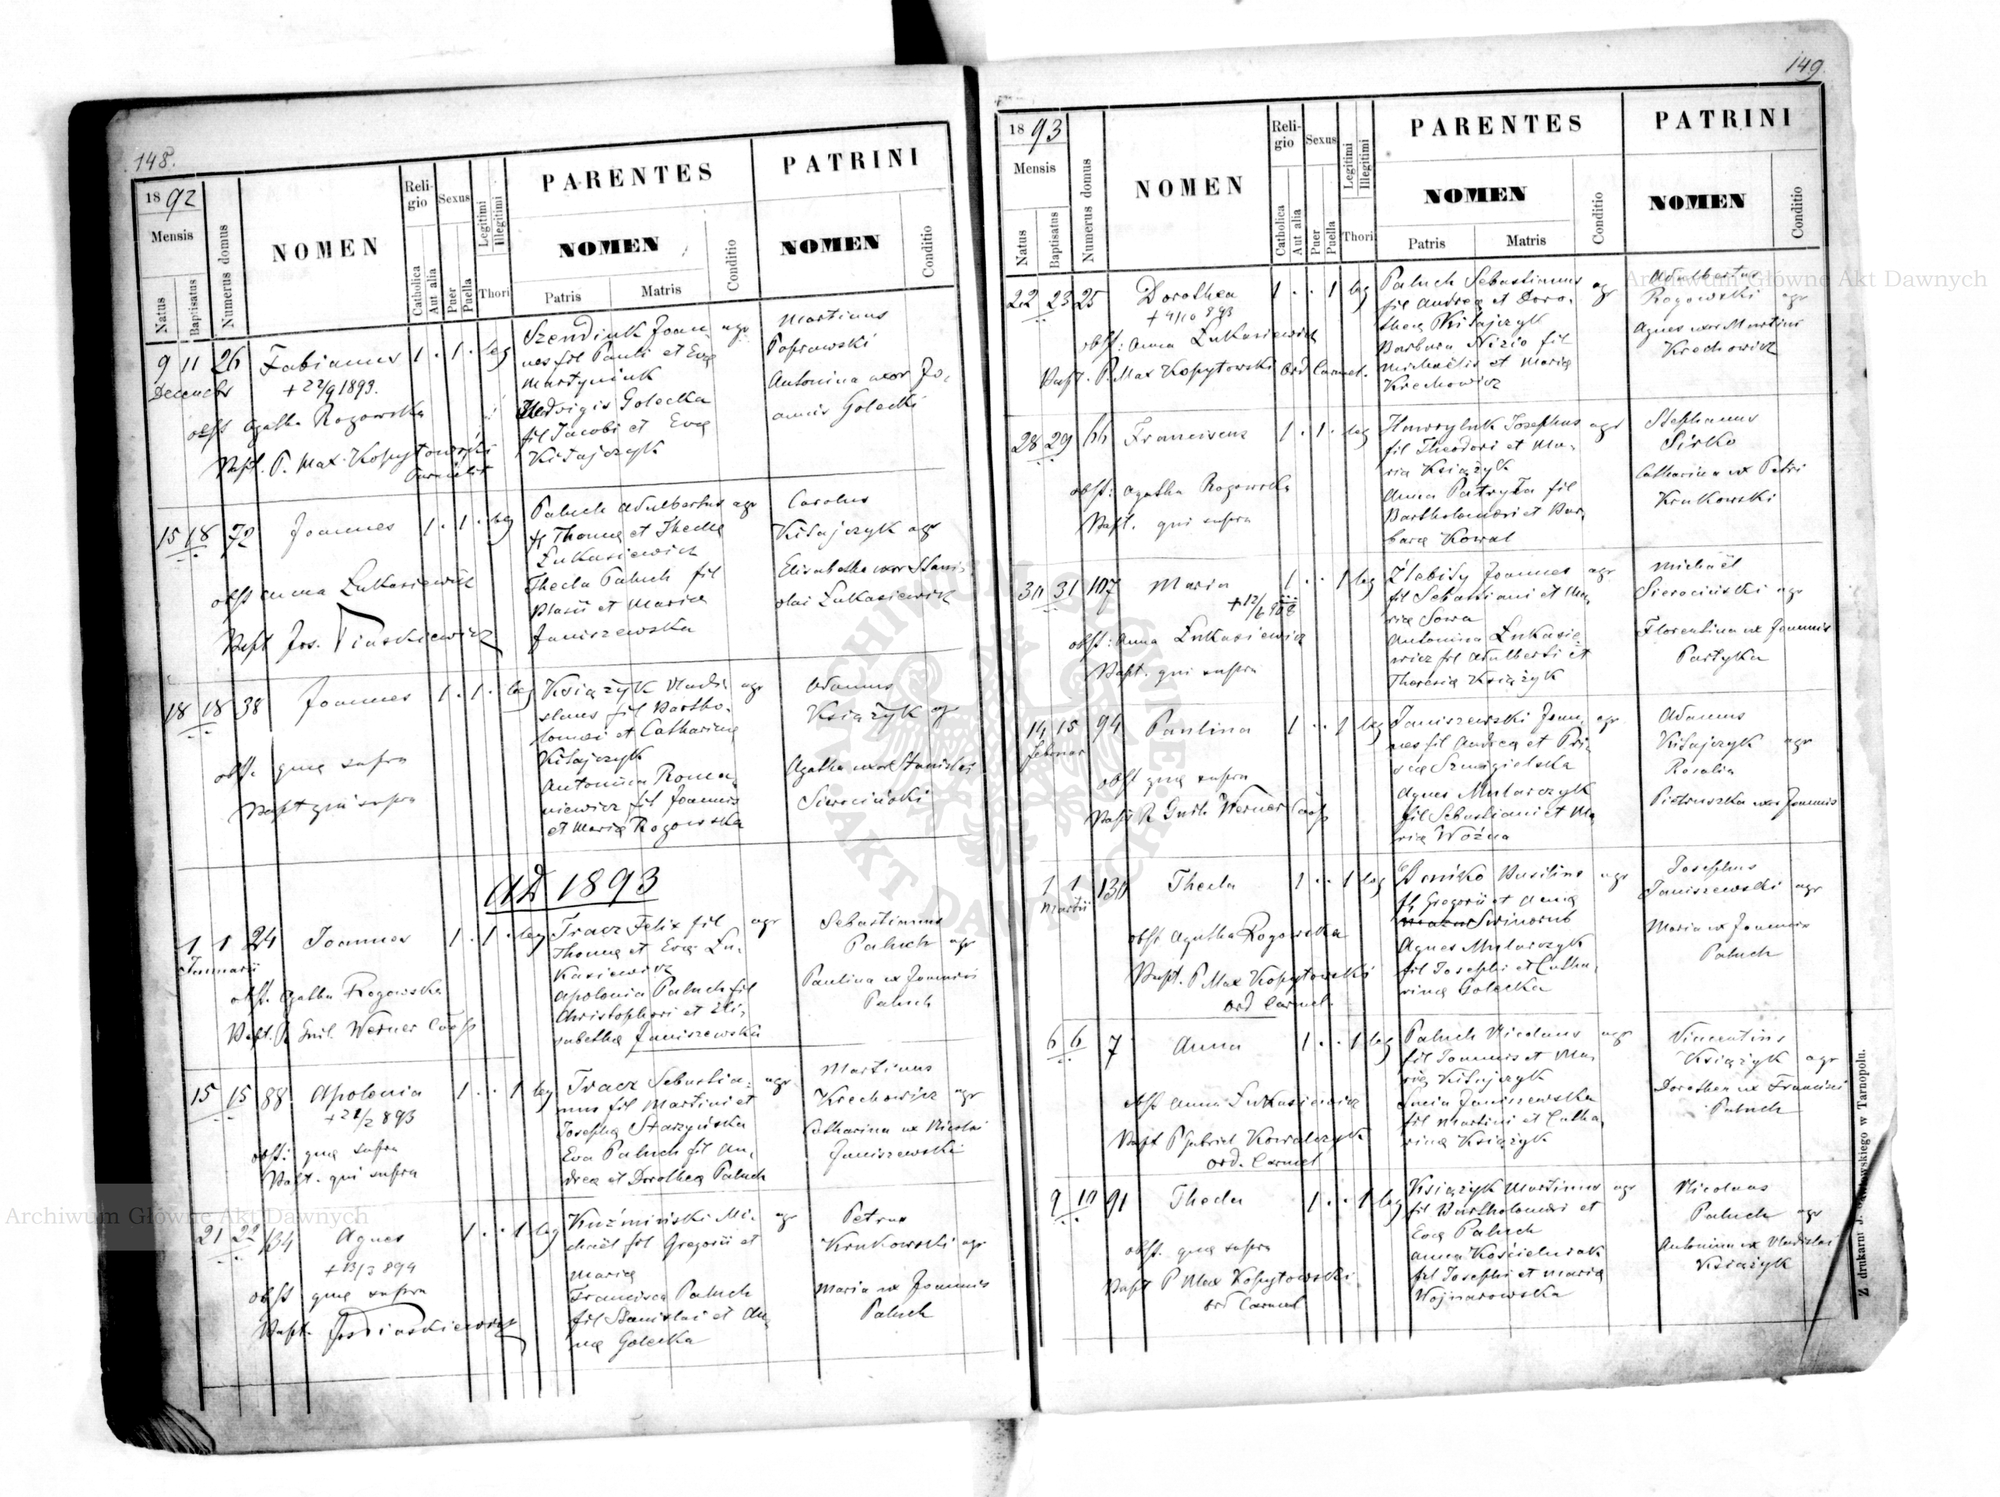 148.
1892
Mensis
Natus
Baptisatus
Numerus domus
NOMEN
Religio
Catholica
Aut alia
Sexus
Puer
Puella
Legitimi
Illegitimi
Thori
PARENTES
NOMEN
Patris
Matris
Conditio
PATRINI
NOMEN
Conditio
9 11 26 Fabianus 1 . 1 . leg
Decembr
+ 22/9 1893.
obst Agatha Rogowska
Bapt. P. Max. Kopytowski
Carmelit
Szendiuk Joan- agr
nes fil Pauli et Eva
Martyniuk
Hedvigis Golecka
fil Jacobi et Eva
Kisajczyk
Martinus
Poprawski
Antonina uxor Jo-
annis Golecki
15 18 72 Joannes 1 . 1 . leg
obst Anna Łukasiewicz
Bapt Jos. Piaskiewicz
Paluch Adalbertus agr
f. Thoma et Thecla
Łukasiewicz
Thecla Paluch fil
Blasii et Maria
Janiszewska
Carolus
Kisajczyk agr
Elisabetha uxor Stanis-
olai Łukasiewicz
18 18 38 Joannes 1 . 1 . leg
obst. qua supra
Bapt qui supra
Książyk Vladi- agr
slaus fil Bartho-
lomai et Catharina
Kisajczyk
Antonina Roma-
niewicz fil Joannis
et Maria Rogowska
Adamus
Książyk agr
Agatha uxor Stanislai
Sierociński
AD 1893
1 1 24 Joannes 1 . 1 . leg
Januarii
obst. Agatha Rogowska
Bapt. R Guil. Werner Coop
Tracz Felix fil agr
Thoma et Eva Łu-
kasiewicz
Apolonia Paluch fil
Christophori et Eli-
sabetha Janiszewska
Sebastianus
Paluch agr
Paulina ux Joannis
Paluch
15 15 88 Apolonia 1 . . 1 leg
+ 22/2 893
obst: qua supra
Bapt. qui supra
Tracz Sebastia- agr
nus fil Martini et
Josepha Starzyńska
Eva Paluch fil An-
drea et Dorothea Paluch
Martinus
Krechowicz agr
Catharina ux Nicolai
Janiszewski
21 22 134 Agnes 1 . . 1 leg
+ 13/3 894
obst qua supra
Bapt. Jos Piaskiewicz
Kuźmiński Mi- agr
chaël fil Gregorii et
Maria
Francisca Paluch
fil Stanislai et An-
na Golecka
Petrus
Krukowski agr
Maria ux Joannis
Paluch
149.
1893
Mensis
Natus
Baptisatus
Numerus domus
NOMEN
Religio
Catholica
Aut alia
Sexus
Puer
Puella
Legitimi
Illegitimi
Thori
PARENTES
NOMEN
Patris
Matris
Conditio
PATRINI
NOMEN
Conditio
22 23 25 Dorothea 1 . . 1 leg
+ 4/10 893
obst: Anna Łukasiewicz
Bapt. P. Max Kopytowski Ord Carmel.
Paluch Sebastianus agr
fil Andrea et Doro-
thea Kisajczyk
Barbara Nizio fil
Michaëlis et Maria
Krechowicz
Adalbertus
Rogowski agr
Agnes uxor Martini
Krechowicz
28 29 66 Franciscus 1 . 1 . leg
obst: Agatha Rogowska
Bapt. qui supra
Hawryluk Josephus agr
fil Theodori et Ma-
ria Książyk
Anna Patryła fil
Bartholomai et Bar-
bara Kowal
Stephanus
Sirko
Catharina ux Petri
Krukowski
30 31 107 Maria 1 . . 1 leg
obst: Anna Łukasiewicz
Bapt. qui supra
Joannes agr
fil Sebastiani et Ma-
ria Sowa
Antonina Łukasie-
wicz fil Adalberti et
Theresia Książyk
Michaël
Sierociński agr
Florentina ux Joannis
Partyka
14 15 94 Paulina 1 . . 1 leg
Februar
obst qua supra
Bapt R Guil. Werner Coop
Janiszewski Joan- agr
nes fil Andrea et Pri-
sca Szmigielska
Agnes Mularczyk
fil Sebastiani et Ma-
ria Woźna
Adamus
Kisajczyk agr
Rosalia
Pietruszka uxor Joannis
1 1 130 Thecla 1 . . 1 leg
Martii
obst Agatha Rogowska
Bapt. P Max Kopytowski
Ord Carmel.
Basilius agr
f. Gregorii et Anna
Agnes Mularczyk
fil Josephi et Catha-
rina Golecka
Josephus
Janiszewski agr
Maria ux Joannis
Paluch
6 6 7 Anna 1 . . 1 leg
obst Anna Łukasiewicz
Bapt P Gabriel Kowalczyk
Ord. Carmel
Paluch Nicolaus agr
fil Joannis et Ma-
ria Kisajczyk
Lucia Janiszewska
fil Martini et Catha-
rina Książyk
Vincentius
Książyk agr
Dorothea ux Francisci
Paluch
9 10 91 Thecla 1 . . 1 leg
obst. qua supra
Bapt P Max Kopytowski
Ord Carmel
Książyk Martinus agr
fil Bartholomai et
Eva Paluch
Anna Kościelniak
fil Josephi et Maria
Wojnarowska
Nicolaus
Paluch agr
Antonina ux Vladislai
Książyk
Z drukarni J. Pawłowskiego w Tarnopolu.
Archiwum Główne Akt Dawnych
Archiwum Główne Akt Dawnych
ARCHIWUM GŁÓWNE
AKT DAWNYCH